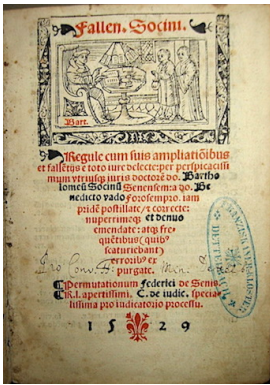 Fallen. Socini.
Bart.
Regule cum suis ampliatiōibus
et fallētijs e toto iure delecte: per perspicacissi
mum vtriusqȝ iuris doctorē do. Bartho
lomeū Socinū Senensem: a do. Be
nedicto vado Forosempro. iam
pridē postillate, et correcte:
nuperrimeqȝ et denuo
emendate: atqȝ fre
quētibus (quibꝰ
scaturiebant)
erroribꝰ ex
purgate.
Pro Conv. Fr. Min.
Permutationum Federici de Senis
C. de iudic. specia
lissima pro iudicatorio processu.
1529